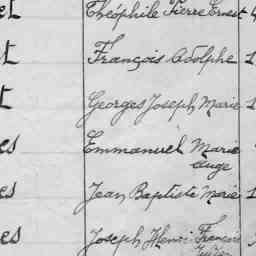 et Théophile Pierre Ernest
t François Adolphe 1
t Georges Joseph Marie 1
es Emmanuel Marie
Auge
es Jean Baptiste Marie 1
es Joseph Henri François
Julien